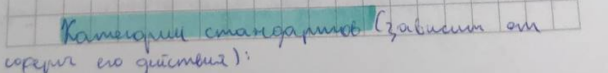 Категории стандартов (зависит от
сферы его действия):